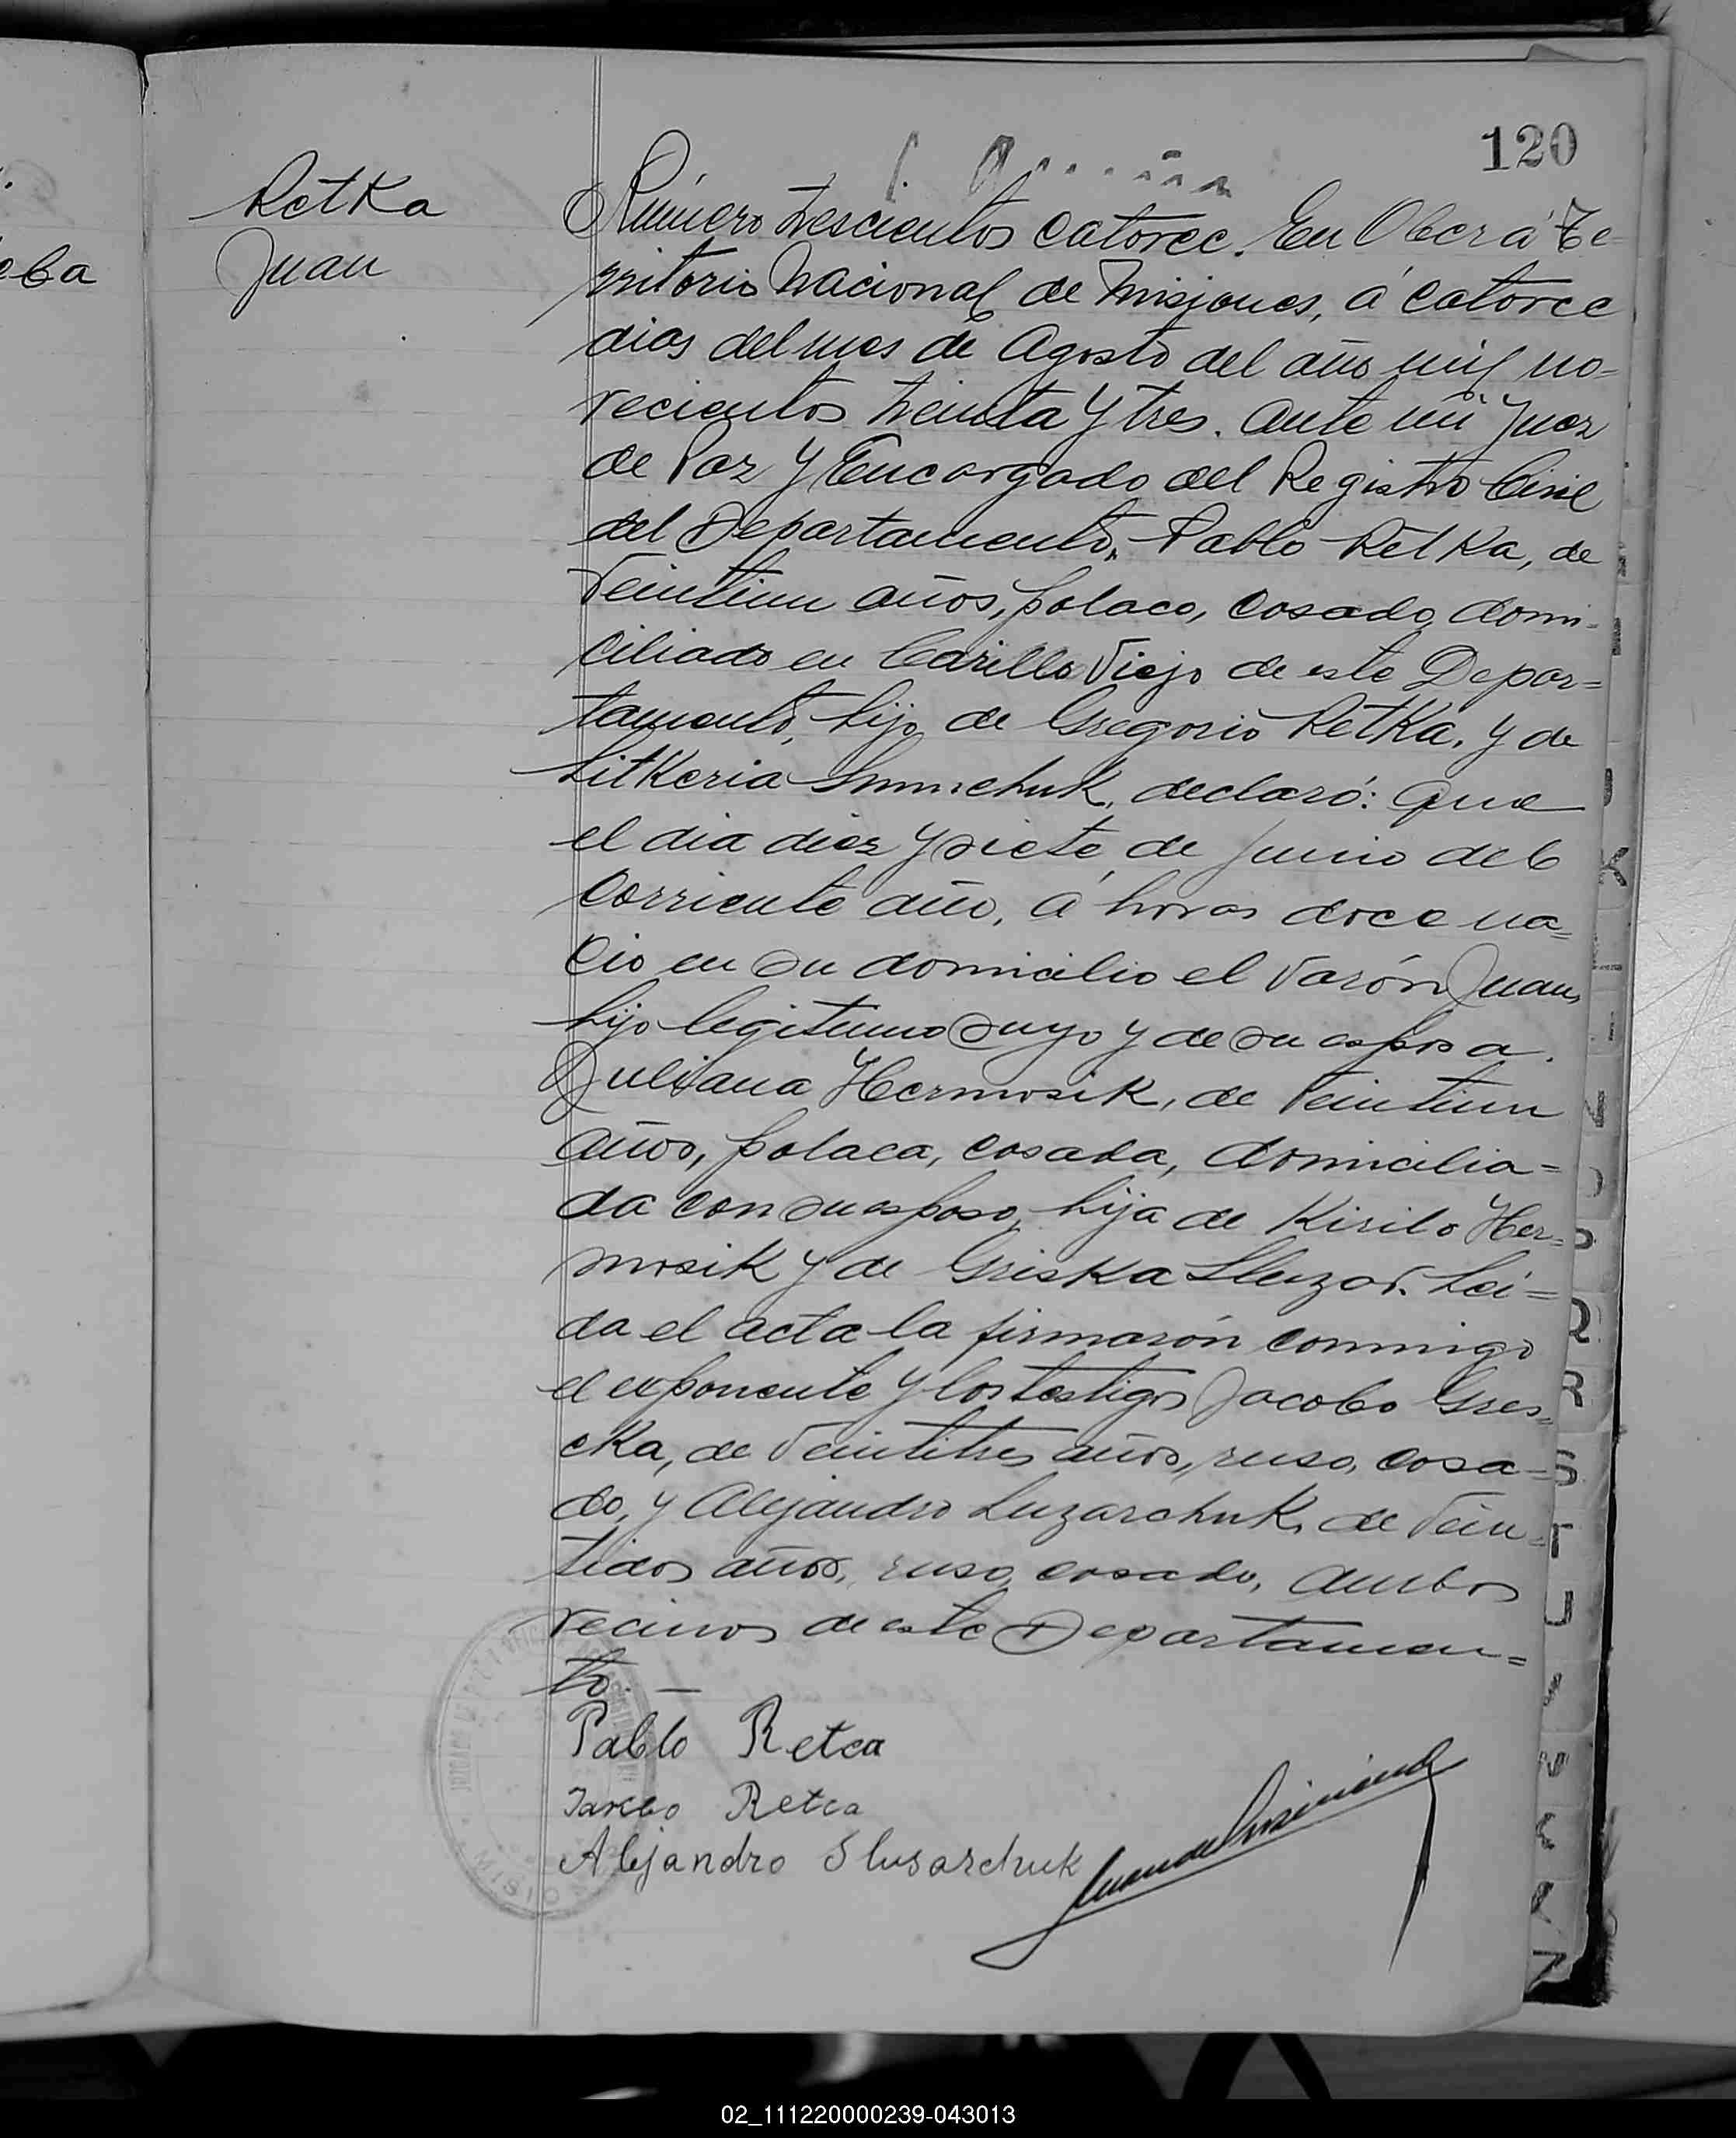 120
Retka
Juan
eba
Número trescientos catorce. En Oberá Te-
rritorio Nacional de Misiones, á catorce
dias del mes de Agosto del año mil no-
vecientos treinta y tres. Ante mi Juez
de Paz y Encargado del Registro Civil
del Departamento, Pablo Retka, de
veintiun años, polaco, casado, domi-
ciliado en Carillo Viejo de este Depar=
tamento, hijo de Gregorio Retka, y de
declaró: Que
el dia diez y siete de Junio del
corriente año, á horas doce na=
cio en su domicilio el varón Juan,
hijo legitimo suyo y de su esposa.
Juliana Hermosik, de veintiun
años, polaca, casada, domicilia=
da con su esposo, hija de Kirilo Her=
mosik y de Griska. Lei=
da el acta la firmarón conmigo
el exponente y los testigos Jacobo Gres=
cka, de veintitres años, ruso, casa=
do, y Alejandro Luzarchuk, de vein=
tidos años, ruso, casado, ambos
vecinos de este Departamen=
to. —
Pablo Retca
Retca
Alejandro Slusarchuk
MISIO
K
Q
R
S
T
U
Z
02_111220000239-043013